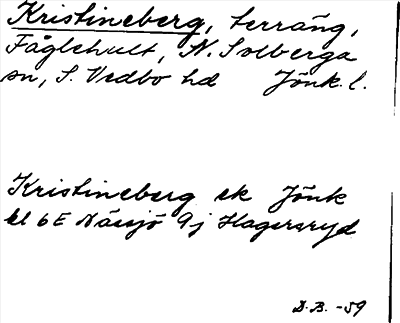 Kristineberg, terräng,
Fåglehult, N. Solberga
sn, S. Vedbo hd Jönk. l.
Kristineberg ek Jönk
bl 6E Nässjö 9j Hagersryd
D.B. -59